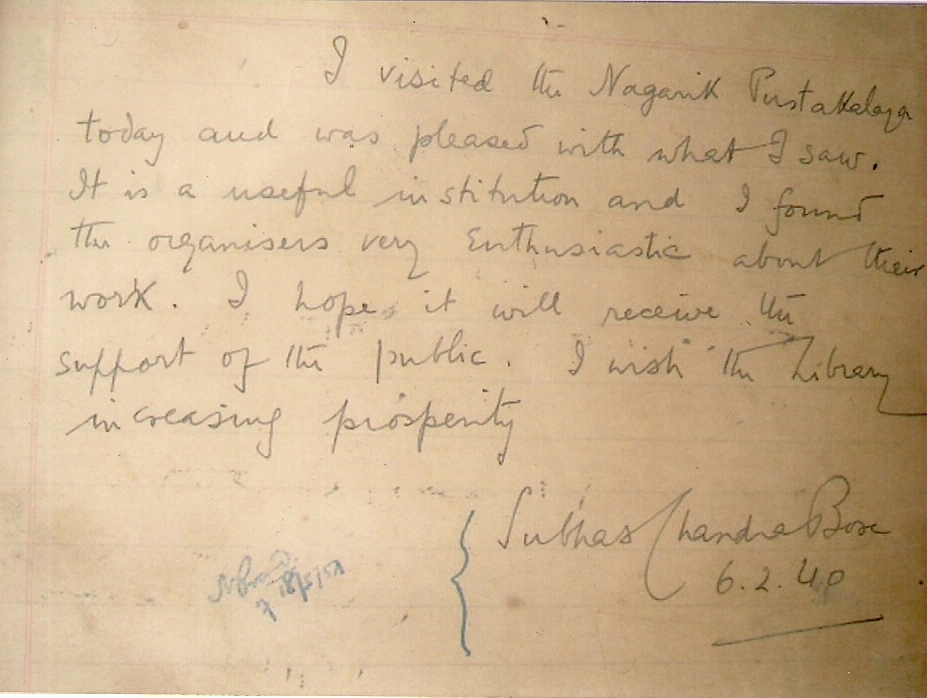 I visited the Nagarik Pustakalaya
today and was pleased with what I saw.
It is a useful institution and I found
the organisers very enthusiastic about their
work. I hope it will receive the
support of the public. I wish the Library
increasing prosperity
Subhas Chandra Bose
6.2.40
18/5/51